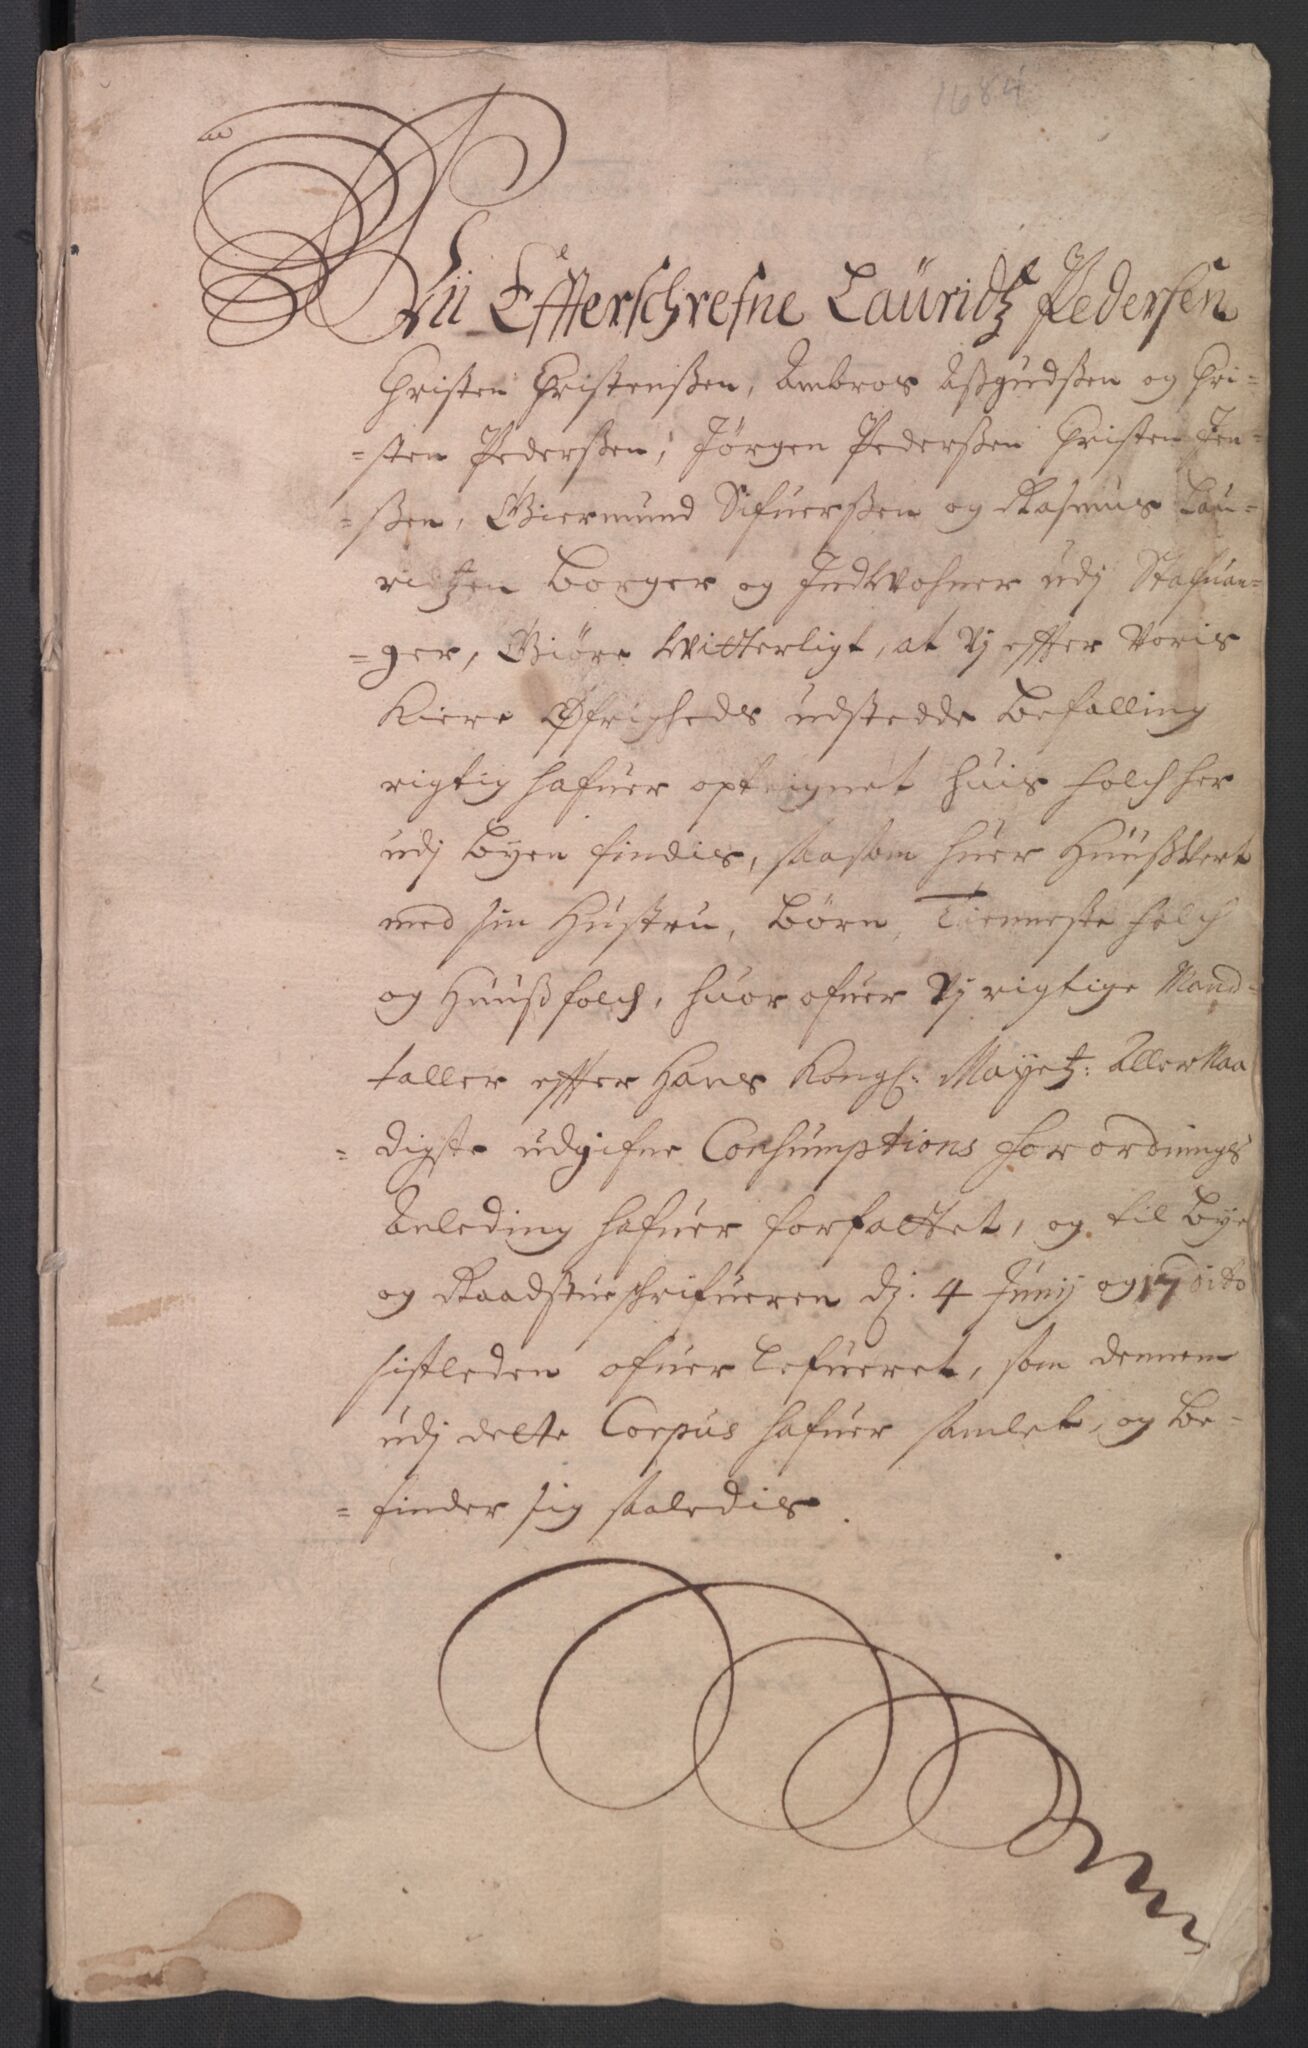 1684
Vii Effterschrefne Lauridtz Pedersen
Christen Christenßen, Ambros Aßgudßen og Chri-
-sten Pederßen, Jørgen Pederßen Christen Jen-
-ßen, Giermund Sifuerßen og Rasmus Lau-
ridtzen Borger og Indwohner udj Stafuan-
-ger, Giøre Witterligt, at Vj effter Voris
Kiere Øfrigheds udstedde Befalling
rigtig hafuer opteignet huis folch her
udj Byen findis, saasom huer Huußvert
med sin Hustru, Børn, Tienneste folch
og Huußfolch, huor ofuer Vj rigtige Mand-
taller effter Hans Kongl: Mayetz: Aller Naa
-digste udgifne Consumptions Forordnings
Anleding hafuer forfattet, og til Bye
og Raadstueschrifueren dj: 4 Junij og 17 dito
sistleden ofuer Lefueret, som dennem
udj dette Corpus hafuer samlet, og Be-
-finder sig saaledis.